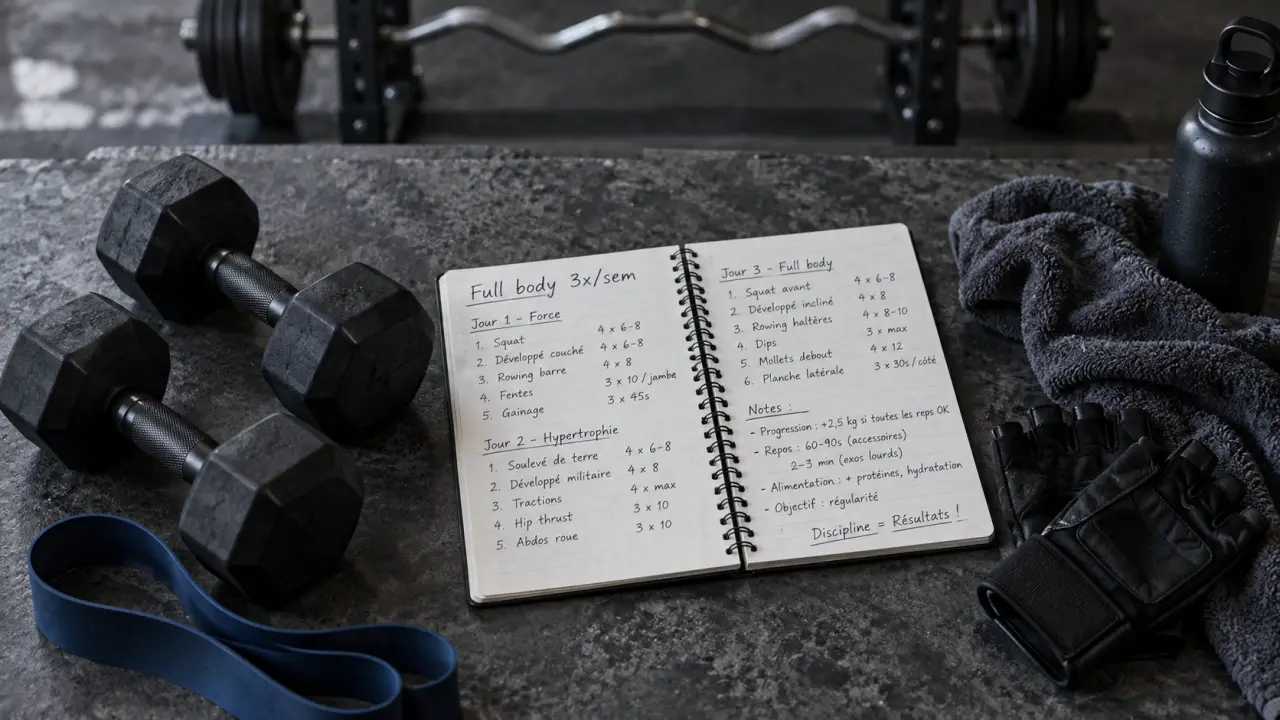 Full body 3x/sem
Jour 1 - Force
1. Squat 4 x 6-8
2. Développé couché 4 x 6-8
3. Rowing barre 4 x 8
4. Fentes 3 x 10 / jambe
5. Gainage 3 x 45s
Jour 2 - Hypertrophie
1. Soulevé de terre 4 x 6-8
2. Développé militaire 4 x 8
3. Tractions 4 x max
4. Hip thrust 3 x 10
5. Abdos roue 3 x 10
Jour 3 - Full body
1. Squat avant 4 x 6-8
2. Développé incliné 4 x 8
3. Rowing haltères 4 x 8-10
4. Dips 3 x max
5. Mollets debout 4 x 12
6. Planche latérale 3 x 30s / côté
Notes :
- Progression : +2,5 kg si toutes les reps OK
- Repos : 60-90s (accessoires)
2-3 min (exos lourds)
- Alimentation : + protéines, hydratation
- Objectif : régularité
Discipline = Résultats !